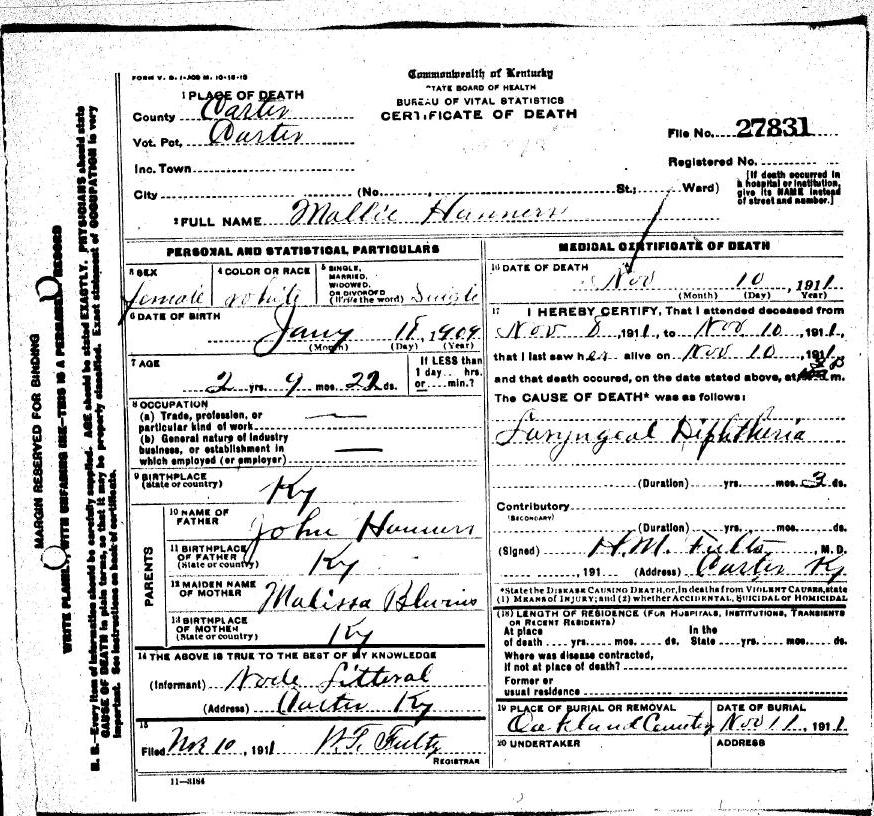 FORM V. S. 1-
Commonwealth of Kentucky
STATE BOARD OF HEALTH
BUREAU OF VITAL STATISTICS
CERTIFICATE OF DEATH
1 PLACE OF DEATH
County Carter
Vot. Pct. Carter
Inc. Town
City (No. , St.; Ward)
File No. 27831
Registered No.
[If death occurred in
a hospital or institution,
give its NAME instead
of street and number.]
2 FULL NAME Mallie Hanners
PERSONAL AND STATISTICAL PARTICULARS
3 SEX female
4 COLOR OR RACE white
5 SINGLE,
MARRIED,
WIDOWED,
OR DIVORCED
(Write the word) Single
6 DATE OF BIRTH
Jany 18 1909
(Month) (Day) (Year)
7 AGE
2 yrs. 9 mos. 22 ds.
If LESS than
1 day... hrs.
or... min.?
8 OCCUPATION
(a) Trade, profession, or
particular kind of work
(b) General nature of industry
business, or establishment in
which employed (or employer)
9 BIRTHPLACE
(State or country) Ky
PARENTS
10 NAME OF
FATHER John Hanners
11 BIRTHPLACE
OF FATHER
(State or country) Ky
12 MAIDEN NAME
OF MOTHER Malissa Blevins
13 BIRTHPLACE
OF MOTHER
(State or country) Ky
14 THE ABOVE IS TRUE TO THE BEST OF MY KNOWLEDGE
(Informant) Node Litteral
(Address) Carter Ky
15
Filed Nov 10, 1911 W.T. Fultz
REGISTRAR
11-3184
MEDICAL CERTIFICATE OF DEATH
16 DATE OF DEATH
Nov 10, 1911
(Month) (Day) Year)
17 I HEREBY CERTIFY, That I attended deceased from
Nov 8, 1911, to Nov 10, 1911,
that I last saw her alive on Nov 10, 1911,
and that death occured, on the date stated above, at m.
The CAUSE OF DEATH* was as follows:
Laryngeal Diphtheria
(Duration) yrs. mos. 3 ds.
Contributory
(SECONDARY)
(Duration) yrs. mos. ds.
(Signed) H.M. Fultz, M. D.
, 191 (Address) Carter Ky
*State the DISEASE CAUSING DEATH, or, in deaths from VIOLENT CAUSES, state
(1) MEANS OF INJURY; and (2) whether ACCIDENTAL, SUICIDAL or HOMICIDAL
(18) LENGTH OF RESIDENCE (FOR HOSPITALS, INSTITUTIONS, TRANSIENTS
OR RECENT RESIDENTS)
At place In the
of death yrs. mos. ds. State yrs. mos. ds.
Where was disease contracted,
if not at place of death?
Former or
usual residence
19 PLACE OF BURIAL OR REMOVAL
Oakland Cemetery
DATE OF BURIAL
Nov 11, 1911
20 UNDERTAKER
ADDRESS
MARGIN RESERVED FOR BINDING
WRITE PLAINLY, WITH UNFADING INK—THIS IS A PERMANENT RECORD
N. B.—Every item of information should be carefully supplied. AGE should be stated EXACTLY. PHYSICIANS should state
CAUSE OF DEATH in plain terms, so that it may be properly classified. Exact statement of OCCUPATION is very
important. See instructions on back of certificate.